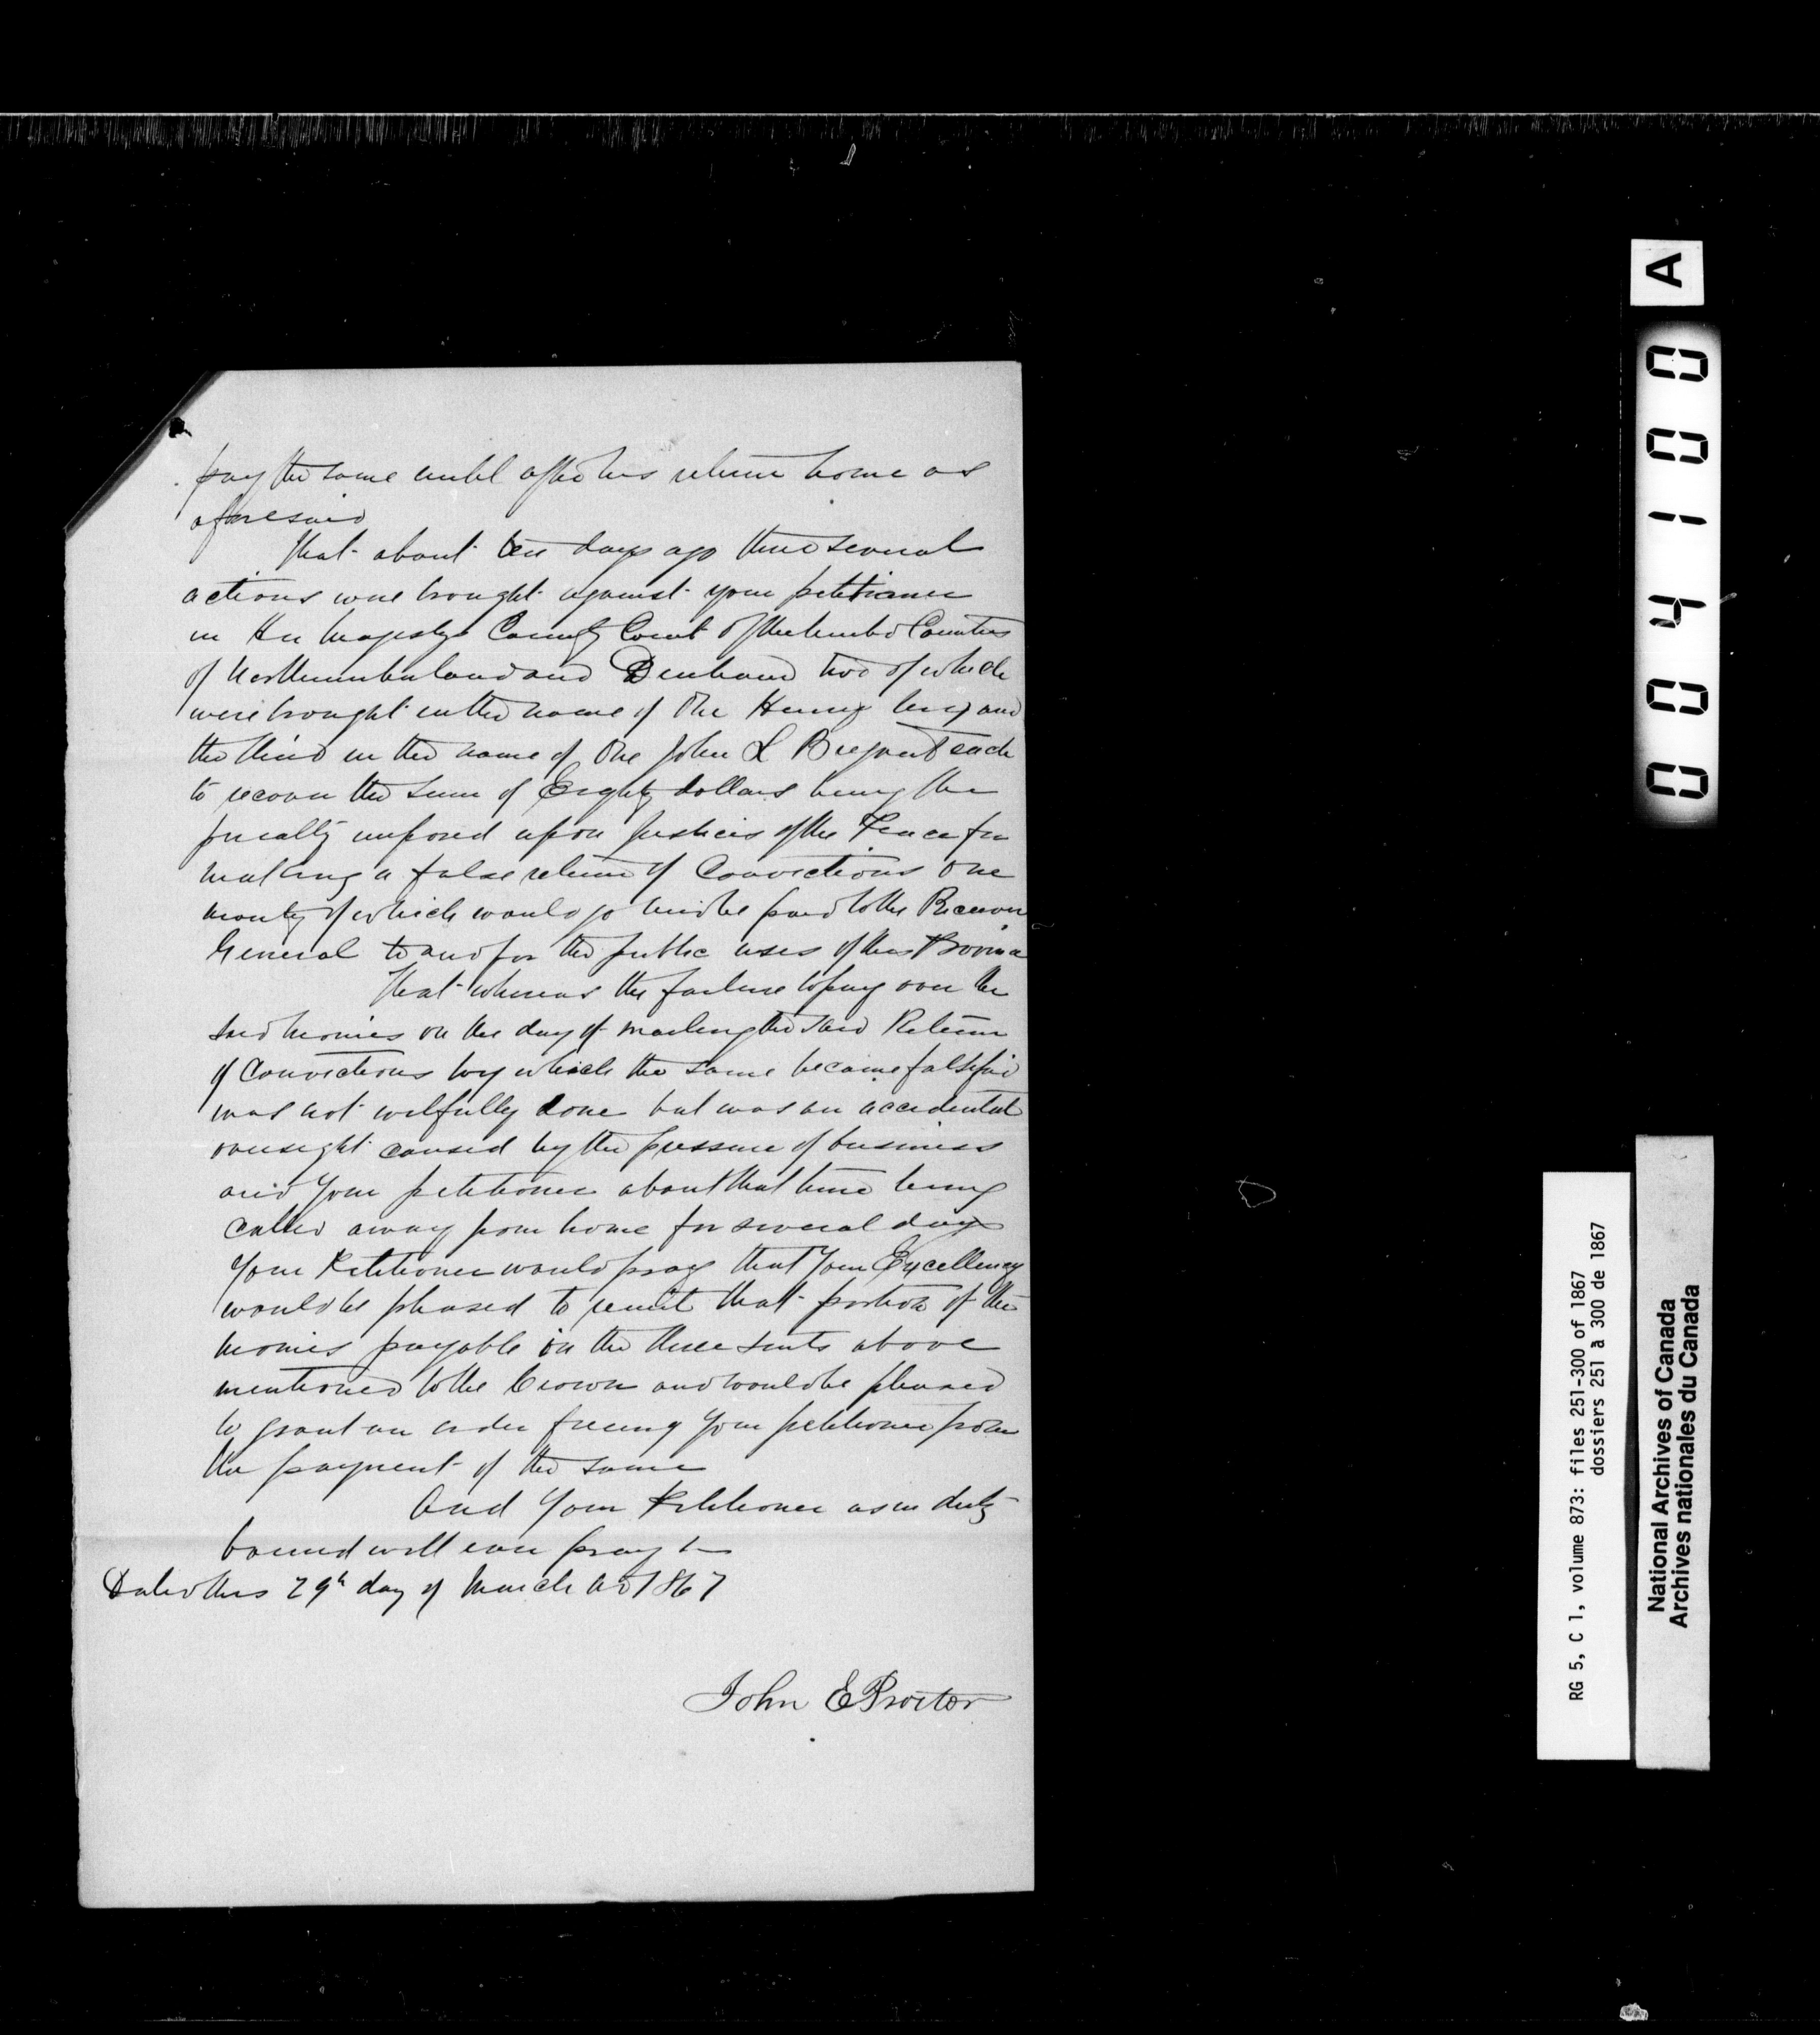 pay the same until after his return home as
aforesaid
That about ten days ago three several
actions were brought against your petitioner
in Her Majestys County Court of the United Counties
of Northumberland and Durham two of which
were brought in the name of one Henry and
the third in the name of One John L each
to recover the sum of Eighty dollars being the
penalty imposed upon Justices of the Peace for
making a false return of Convictions one
moiety of which would go and be paid to the Receiver
General to and for the public uses of this Province
That whereas the failure to pay over the
said monies on the day of making the said Return
of Convictions by which the same became falsified
was not wilfully done but was an accidental
oversight caused by the pressure of business
and Your petitioner about that time being
called away from home for several days
Your Petitioner would pray that Your Excellency
would be pleased to remit that portion of the
monies payable in the three suits above
mentioned to the Crown and would be pleased
to grant an order freeing Your petitioner from
the payment of the same
And Your Petitioner as in duty
bound will ever pray &c
Dated this 29th day of March AD 1867
John E Proctor
A
004100
RG 5, C 1, volume 873: files 251-300 of 1867
dossiers 251 à 300 de 1867
National Archives of Canada
Archives nationales du Canada